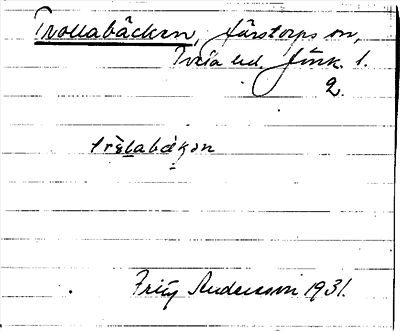 Trollabäcken, Järstorps sn,
Tveta hd. Jönk. l.
2.
trɛ̀labækən
Fritz Andersson 1931.